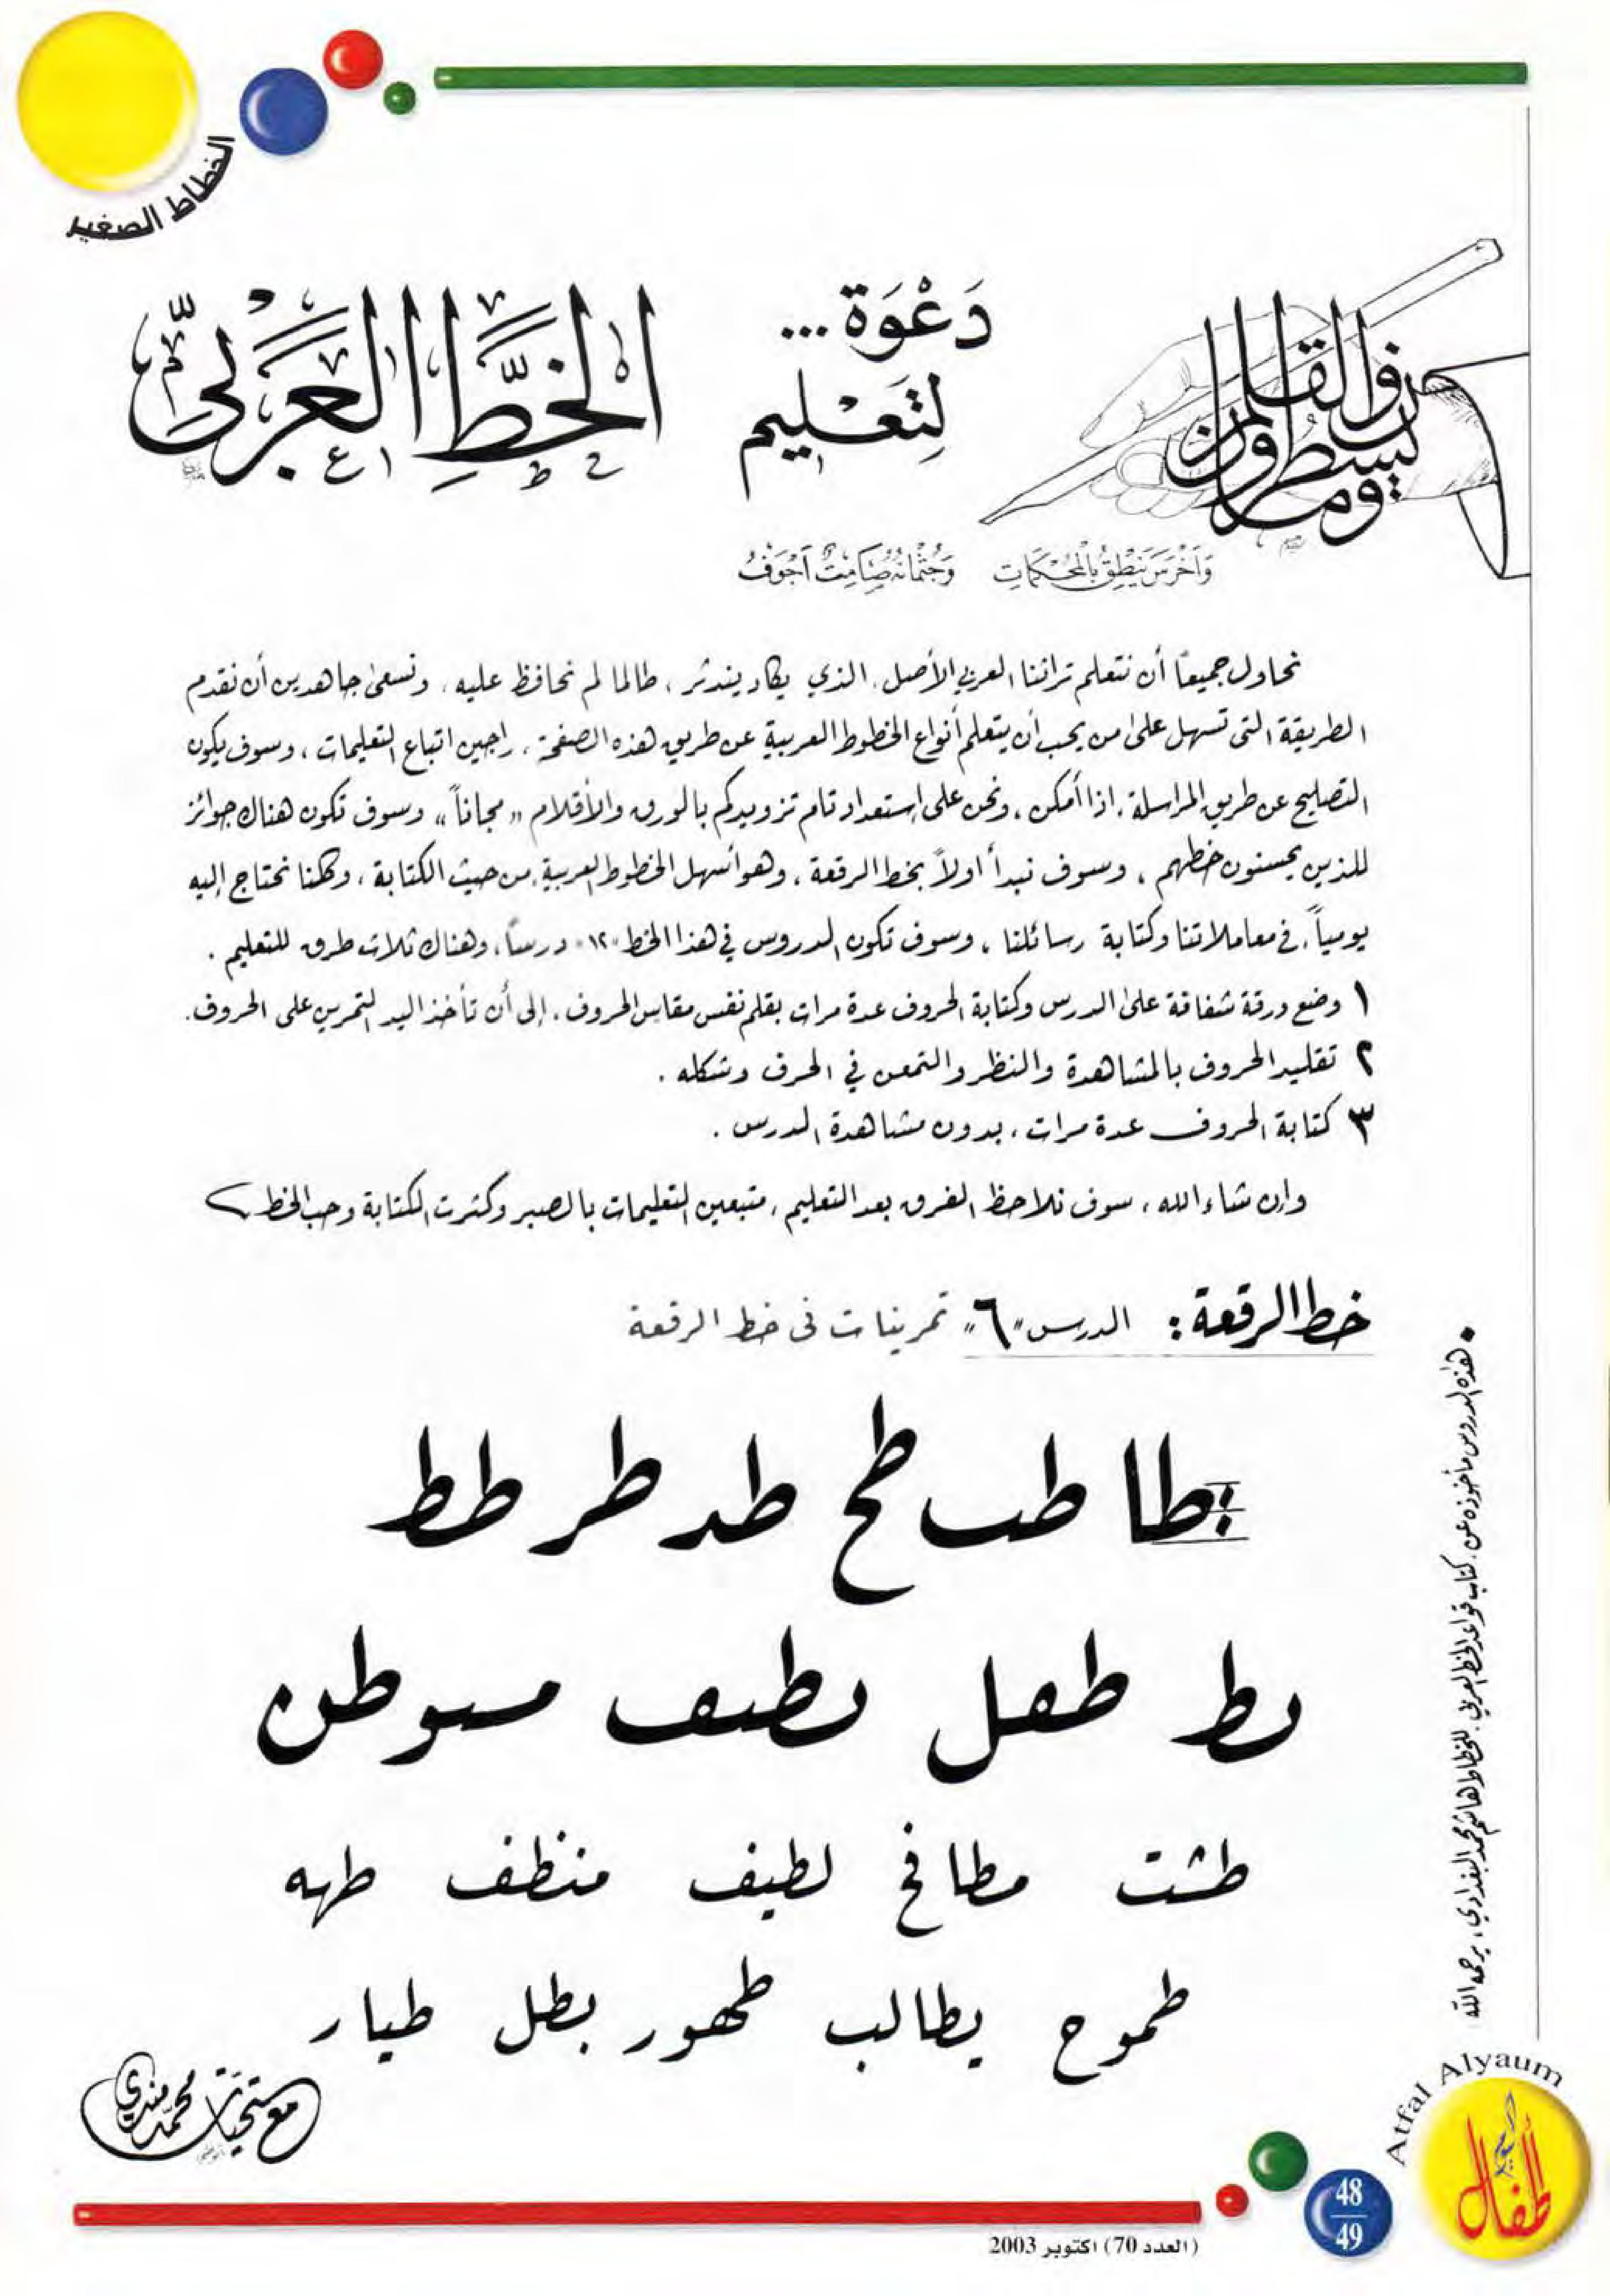 الخطاط الصغير
دَعْوَة...
لِتَعْليم
الخَطِّ العَرَبيِّ
ن والقلم
وما يسطرون
وَأَخْرَسَ يَنْطِقُ بِالْمُحْكَمَاتِ وَجُثْمَانُهُ صَامِتٌ أَجْوَفُ
نحاول جميعاً أن نتعلم تراثنا العربي الأصل. الذي يكاد يندثر، طالما لم نحافظ عليه، ونسعى جاهدين أن نقدم
الطريقة التي تسهل على من يحب أن يتعلم أنواع الخطوط العربية عن طريق هذه الصفحة، راجين اتباع التعليمات، وسوف يكون
التصليح عن طريق المراسلة، إذا أمكن، ونحن على استعداد تام تزويدكم بالورق والأقلام "مجاناً" وسوف تكون هناك جوائز
للذين يحسنون خطهم، وسوف نبدأ أولاً بخط الرقعة، وهو أسهل الخطوط العربية من حيث الكتابة، وكلنا نحتاج إليه
يومياً، في معاملاتنا وكتابة رسائلنا، وسوف تكون الدروس في هذا الخط "١٢" درساً، وهناك ثلاث طرق للتعليم.
١ وضع ورقة شفافة على الدرس وكتابة الحروف عدة مرات بقلم نفس مقاس الحروف، إلى أن تأخذ اليد التمرين على الحروف.
٢ تقليد الحروف بالمشاهدة والنظر والتمعن في الحرف وشكله.
٣ كتابة الحروف عدة مرات، بدون مشاهدة الدرس.
وإن شاء الله، سوف نلاحظ الفرق بعد التعليم، متبعين التعليمات بالصبر وكثرت الكتابة وحب الخط
خط الرقعة: الدرس "٦" تمرينات في خط الرقعة
طا طب طح طد طر طط
بط طفل لطيف مسوطن
طشت مطافح لطيف منظف طهه
طموح يطالب طهور بطل طيار
• هذه الدروس مأخوذه عن كتاب قواعد الخط العربي. للخطاط هاشم محمد البغدادي، يرحمه الله
مع تحيات محمد مندي
Atfal Alyaum
أطفال اليوم
48
49
(العدد 70) اكتوبر 2003